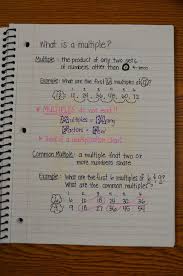 What is a multiple?
Multiple - the product of any two sets
of numbers other than 0
Example: What are the first multiples of
* MULTIPLES do not end!!
Multiples = Many
Factors = Few
Common Multiple - a multiple that two or
more numbers share
Example - What are the first 6 multiples of 6 & 9?
What are the common multiples?
6 12 18 24 30 36
9 18 27 36 45 54